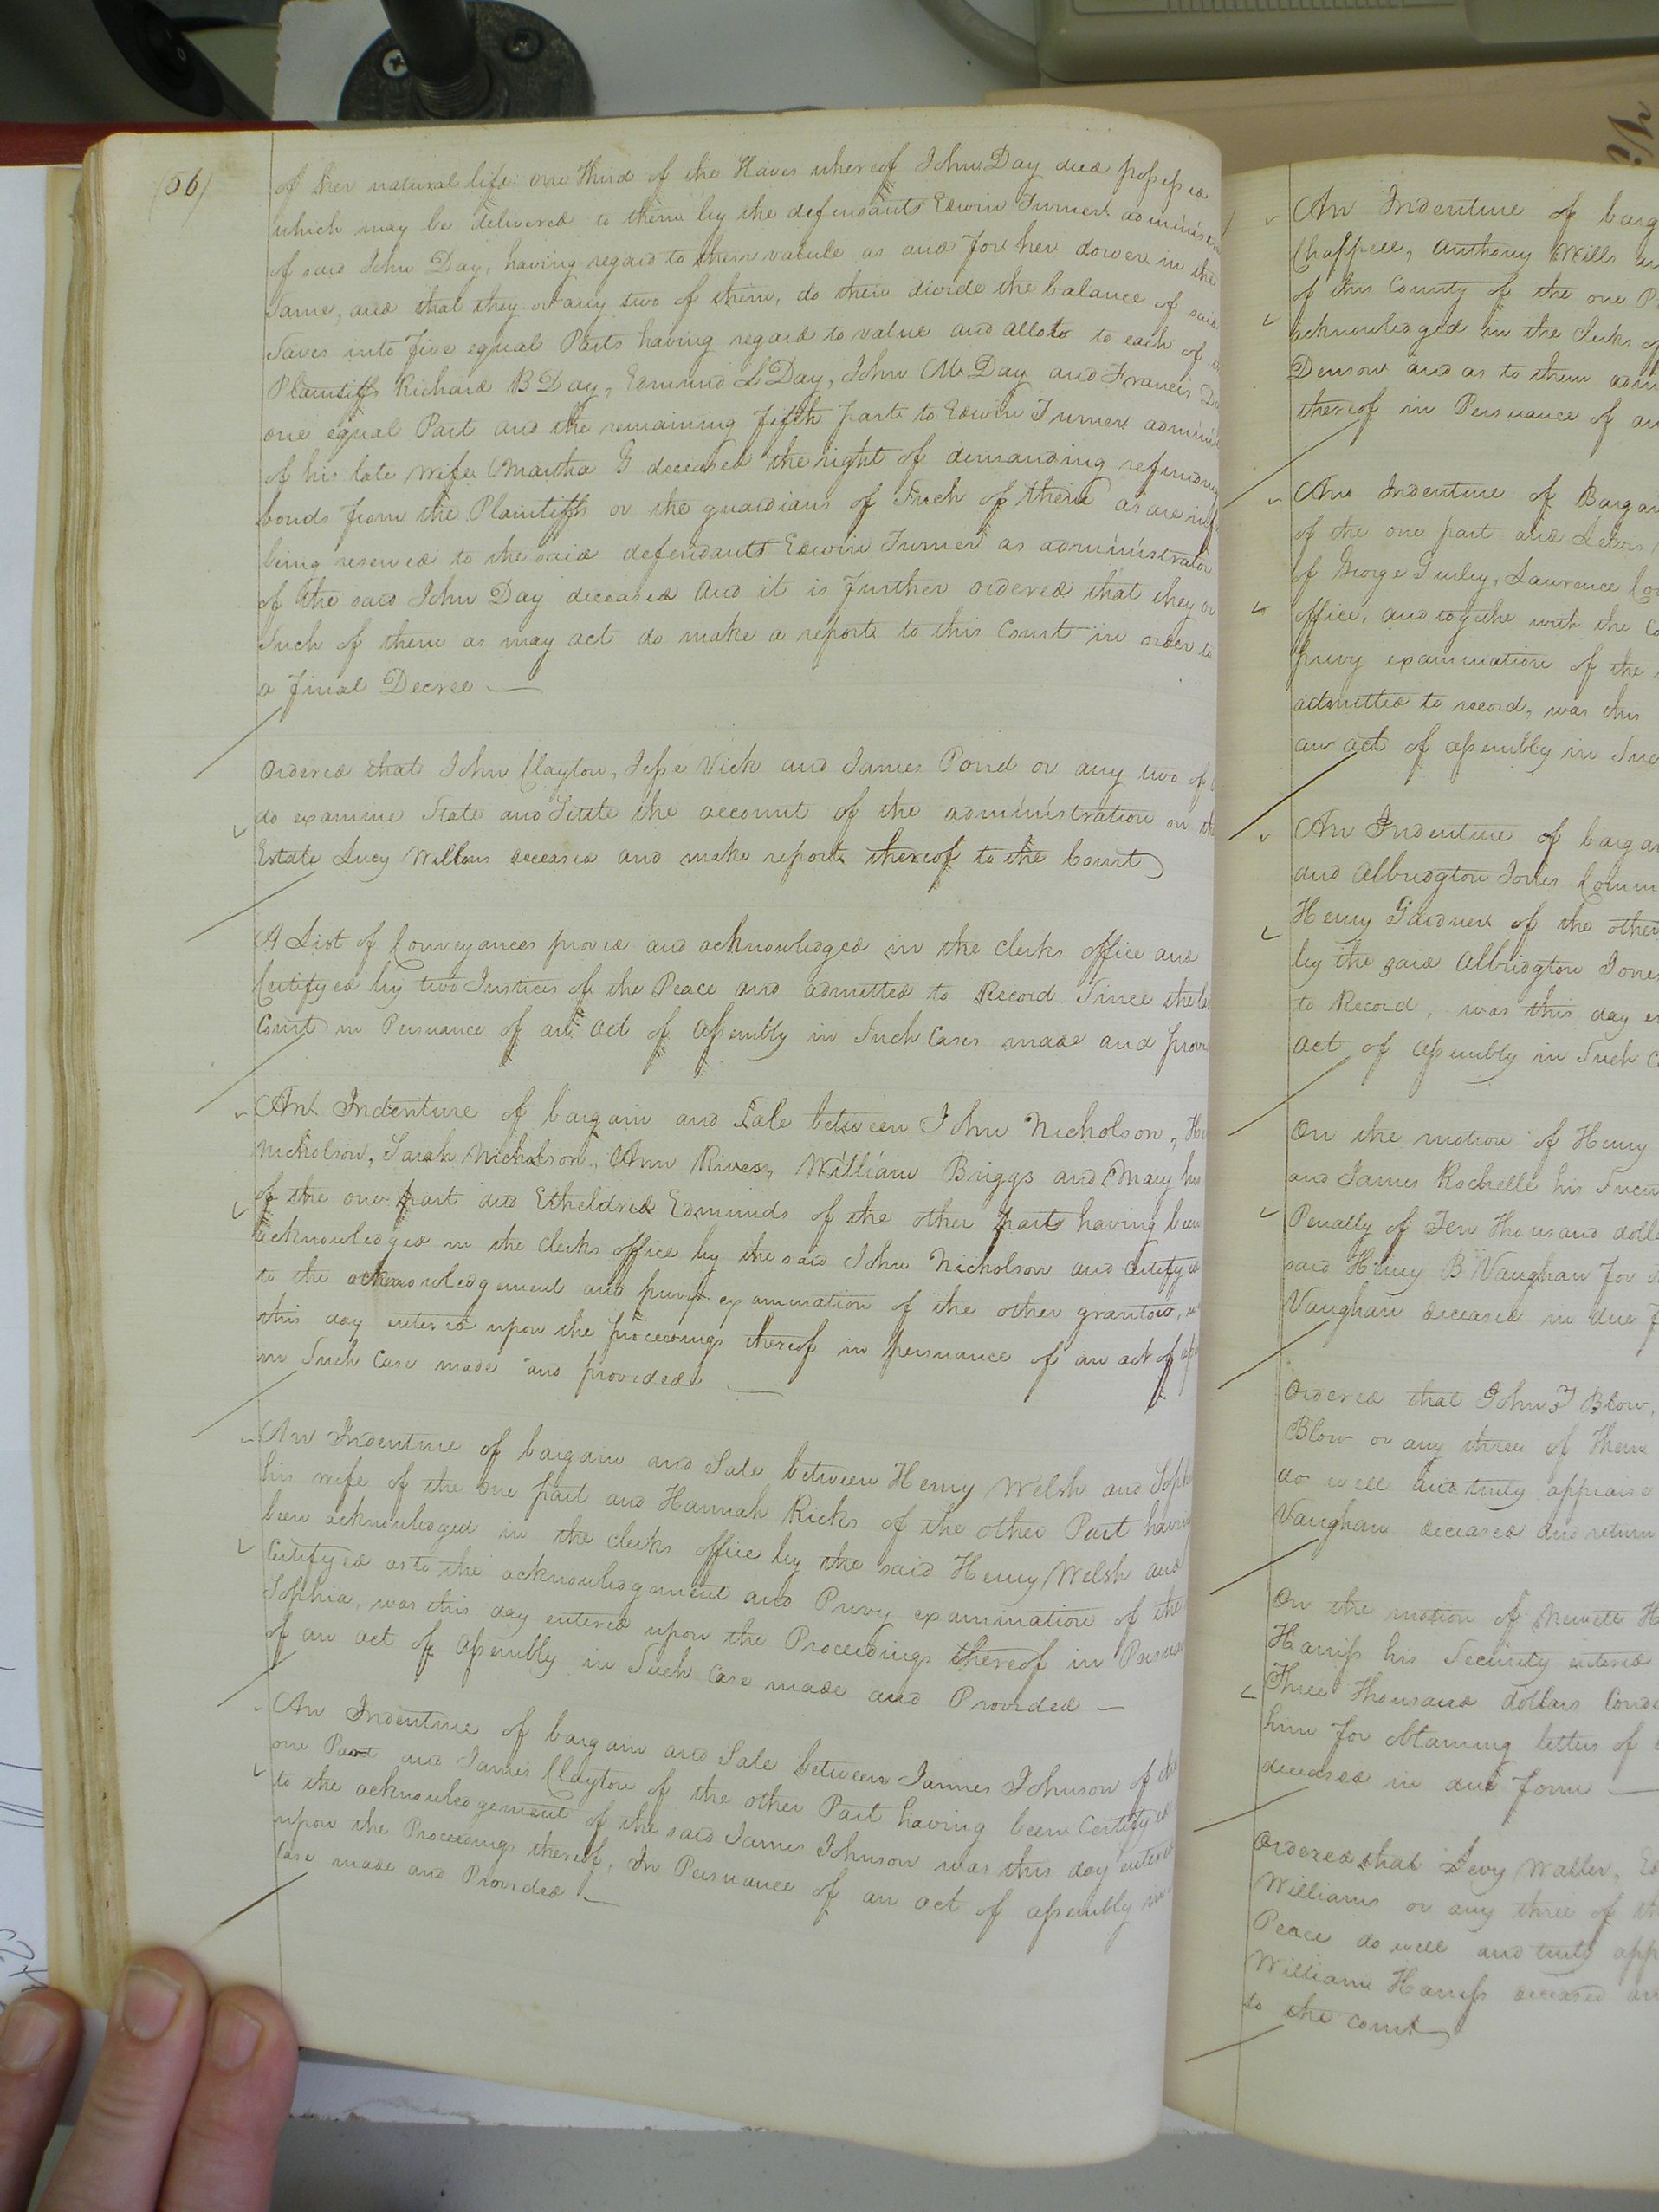 (56)
of her natural life one third of the Slaves whereof John Day died possessed
which may be delivered to them by the defendants Edwin Turner administ
of said John Day, having regard to their valule as and for her dower in the
Same, and that they or any two of them, do then divide the balance of said
Slaves into five equal Parts having regard to value and allots to each of
Plaintiffs Richard B Day, Edmund L Day, John M Day and Francis Da
one equal Part and the remaining fifth part to Edwin Turner admini
of his late wife Martha G deceased the right of demanding refunding
bonds from the Plaintiffs or the guardians of Such of them as are inf
being reserved to the said defendants Edwin Turner as administrator
of the said John Day deceased And it is further ordered that they or
Such of them as may act do make a report to this Court in order to
a final Decree —
Ordered that John Clayton, Jesse Vick and James Pond or any two of
do examine State and Settle the account of the administration on the
Estate Lucy deceased and make report thereof to the Court
A List of Conveyances proved and acknowledged in the clerks office and
Certifyed by two Justices of the Peace and admitted to Record Since the la
Court in Persuance of an Act of Assembly in Such Cases made and prov
An Indenture of bargain and Sale between John Nicholson, He
Nicholson, Sarah Nicholson, Ann Rives, William Briggs and Mary his
of the one part and Etheldred Edmunds of the other part having been
acknowledged in the clerks office by the said John Nicholson and Certifyed
to the acknowledgement and privy examination of the other grantors, w
this day entered upon the proceedings thereof in persuance of an act of
in Such Case made and provided —
An Indenture of bargain and Sale between Henry Welsh and Soph
his wife of the one part and Hannah Ricks of the other Part having
been acknowledged in the clerks office by the said Henry Welsh and
Certifyed as to the acknowledgement and Privy examination of the
Sophia, was this day entered upon the Proceedings thereof in Persua
of an act of Assembly in Such Case made and Provided —
An Indenture of bargain and Sale between James Johnson of the
one Part and James Clayton of the other Part having been Certifyed
to the acknowledgement of the said James Johnson was this day entered
upon the Proceedings thereof, In Persuance of an act of assembly in
Case made and Provided —
An Indenture of barg
Chappell, Anthony Mills an
of this County of the one P
acknowledged in the Clerks of
Denson and as to them adm
thereof in Persuance of an
An Indenture of Bargai
of the one part and
of George Gurley, Lawrence
office, and together with the Co
privy examination of the
admitted to record, was this
an act of assembly in Suc
An Indenture of bargai
and Albridgton Jones Comm
Henry Gardner of the other
by the said Albridgton Jones
to Record, was this day en
Act of Assembly in Such C
On the motion of Henry
and James Rochelle his Secu
Penalty of Ten thousand dolla
said Henry B Vaughan for
Vaughan deceased in due f
Ordered that John T Blow,
Blow or any three of them
do well and truly appraise
Vaughan deceased and return
On the motion of Newitt H
Harriss his Security entered
Three thousand dollars Condi
him for obtaining letters of
deceased in due form —
Ordered that Levy Waller, Ed
Williams or any three of th
Peace do well and truly app
William Harriss deceased an
to the court